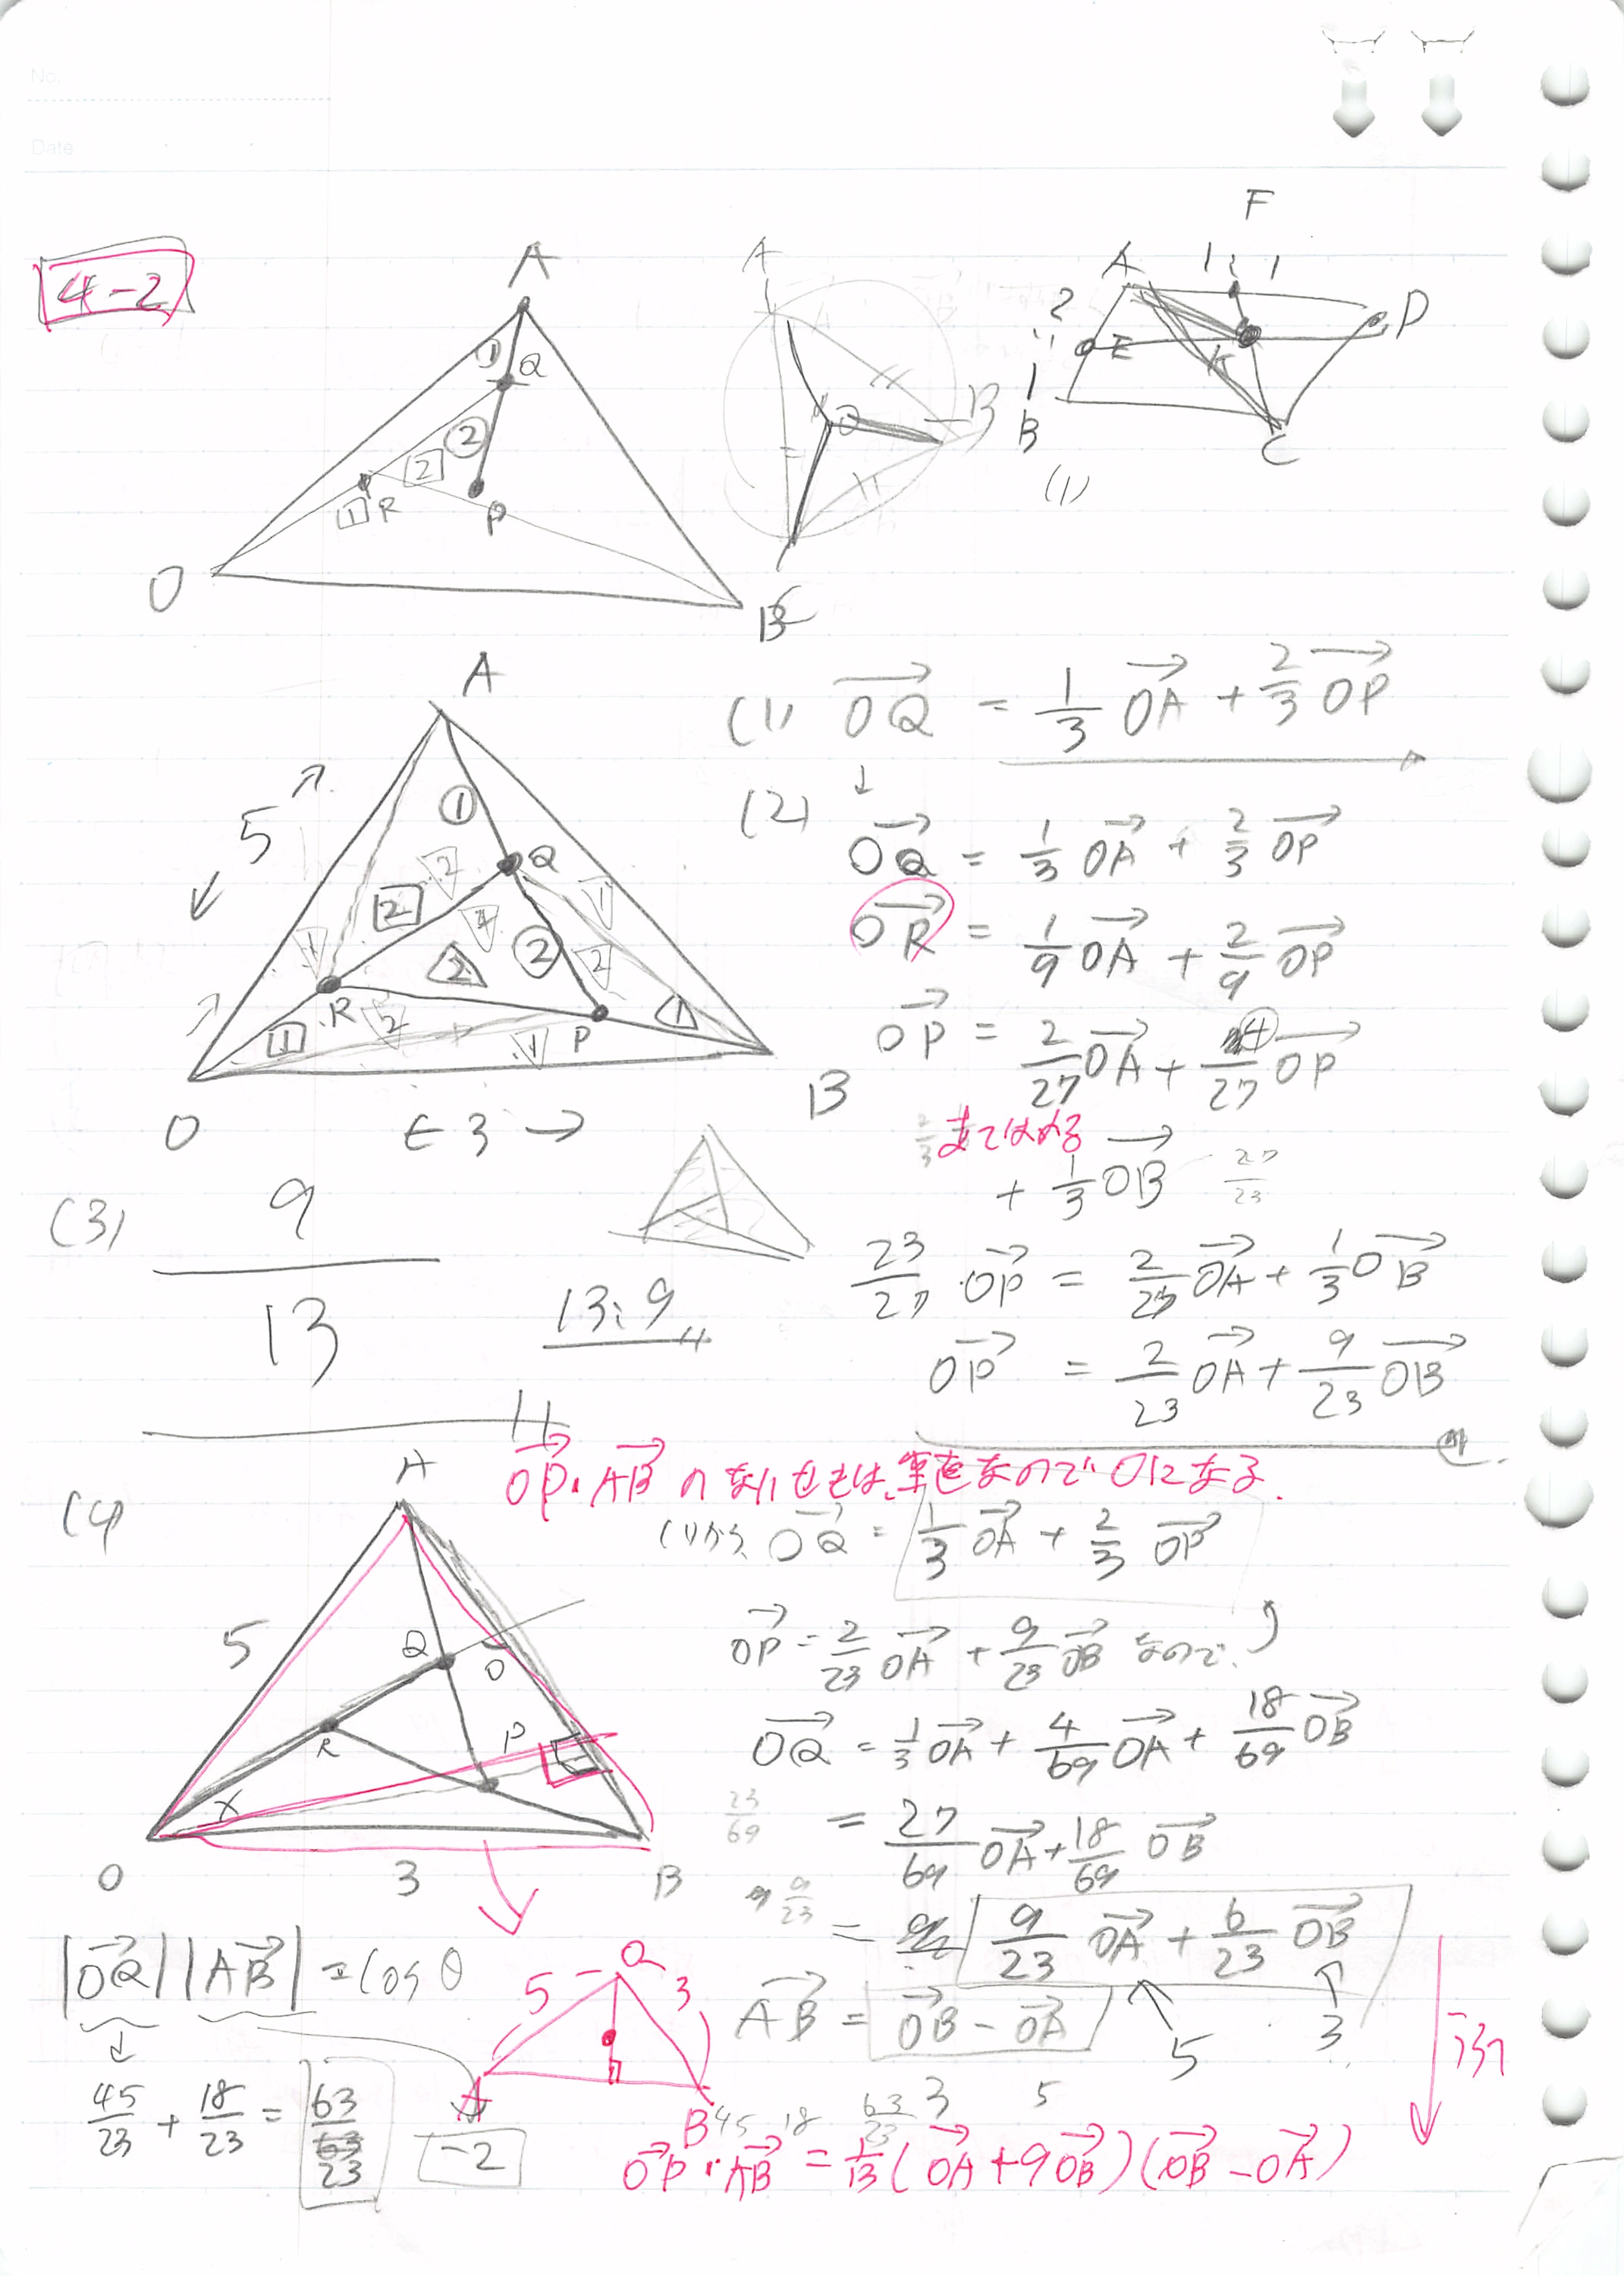 No.
Date
4-2
A
Q
① ②
2
1 R
P
O
B
A
O
B
C
F
A 1 : 1
2
:
1
E
K
D
B
C
(1)
A
5
①
Q
2
②
R
P
1
O
B
← 3 →
(1) OQ = 1/3 OA + 2/3 OP
(2) ↓
OQ = 1/3 OA + 2/3 OP
OR = 1/9 OA + 2/9 OP
OP = 2/27 OA + 4/27 OP
あてはめる
+ 1/3 OB 27/23
23/27 OP = 2/27 OA + 1/3 OB
OP = 2/23 OA + 9/23 OB
(3) 9/13
13:9
(4)
OP・AB のないせきは、垂直なので 0になる.
(1)から OQ = 1/3 OA + 2/3 OP
OP = 2/23 OA + 9/23 OB なので、
OQ = 1/3 OA + 4/69 OA + 18/69 OB
23/69
= 27/69 OA + 18/69 OB
9/23
= 9/23 OA + 6/23 OB
AB = OB - OA
5 3
A
5
Q
R
P
O
3
B
|OQ||AB| = cosθ
↓
45/23 + 18/23 = 63/23
-2
5 3
A
B
45 18 63/23 3 5
OP・AB = 1/13 (OA + 9OB)(OB - OA)